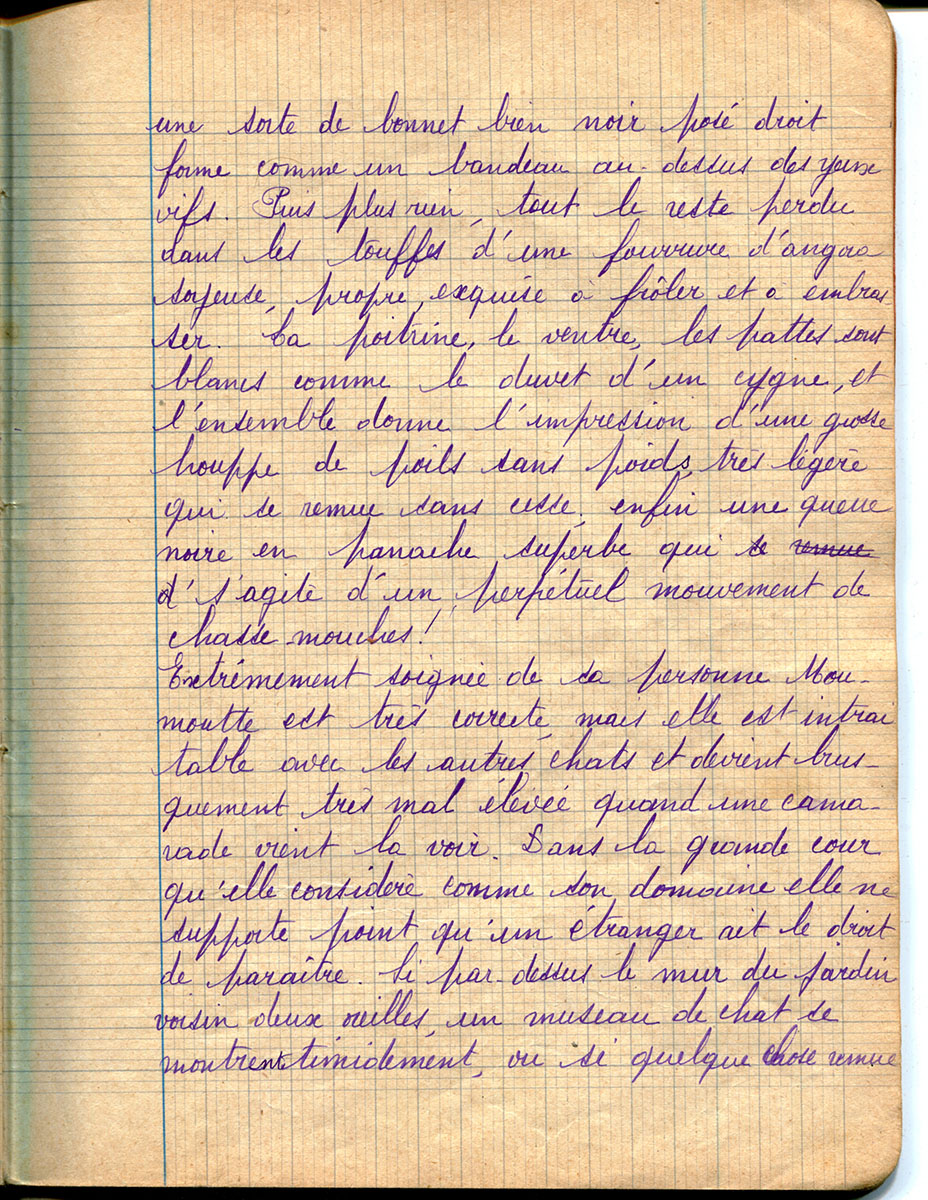 une sorte de bonnet bien noir posé droit
forme comme un bandeau au-dessus des yeux
vifs. Puis plus rien, tout le reste perdu
dans les touffes d'une fourrure d'angora
soyeuse, propre, exquise à frôler et a embras
ser. La poitrine, le ventre, les pattes sont
blancs comme le duvet d'un cygne, et
l'ensemble donne l'impression d'une grosse
houppe de poils sans poids, très légère
qui se remue sans cesse, enfin une queue
noire en panache superbe qui se remue
d' s'agite d'un perpétuel mouvement de
chasse mouches!
Extrêmement soignée de sa personne Mou-
moutte est très correcte, mais elle est intrai
table avec les autres chats et devient brus-
quement très mal élevée quand une cama-
rade vient la voir. Dans la grande cour
qu'elle considère comme son domaine elle ne
supporte point qu'un étranger ait le droit
de paraître. Si par-dessus le mur du jardin
voisin deux oreilles, un museau de chat se
montrent timidement, ou si quelque chose remue